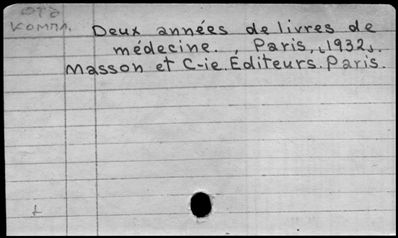 КОММ.
Deux années de livres de
médecine. , Paris, [1932].
Masson et C-ie. Éditeurs. Paris.